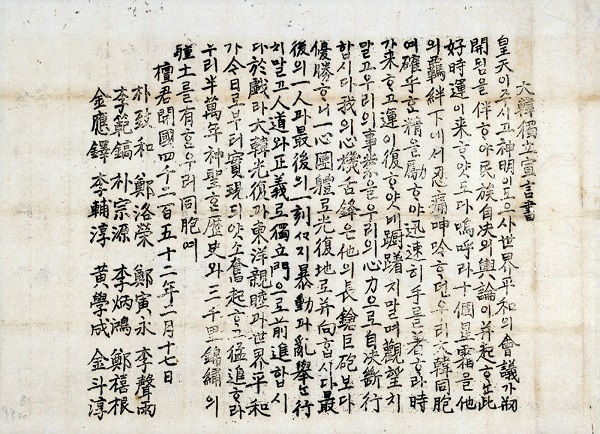 大韓獨立宣言書
皇天이주시고神明이도으사世界平和의會議가刱
開됨을伴ᄒᆞ야民族自決의輿論이幷起ᄒᆞᄂᆞᆫ此
好時運이来ᄒᆞ얏도다嗚呼라十個星霜을他
의羈絆下에서忍痛呻吟ᄒᆞ던우리大韓同胞
여確乎ᄒᆞᆫ精을勵ᄒᆞ야迅速히手를着ᄒᆞ라時
가来ᄒᆞ고運이復ᄒᆞ얏네躕躇치말며觀望치
말고우리의事業을우리의心力으로自決斷行
합시다我의心機舌鋒은他의長鎗巨砲보다
優勝ᄒᆞ니一心團體로光復地로幷向합시다最
後의一人과最後의一刻ᄭᅡ지暴動과亂擧ᄂᆞᆫ行
치말고人道와正義로獨立門으로前進합시
다於戱라大韓光復과東洋親睦과世界平和
가今日로부터實現되얏소奮起ᄒᆞ고猛進ᄒᆞ라
우리半萬年神聖ᄒᆞᆫ歷史와三千里錦繡의
疆土를有ᄒᆞᆫ우리同胞여
檀君開國四千二百五十二年二月十七日
朴致和 鄭洛榮 鄭寅永 李聲雨
李範鎬 朴宗源 李炳鴻 鄭禧根
金應鐸 李輔淳 黃學成 金斗淳